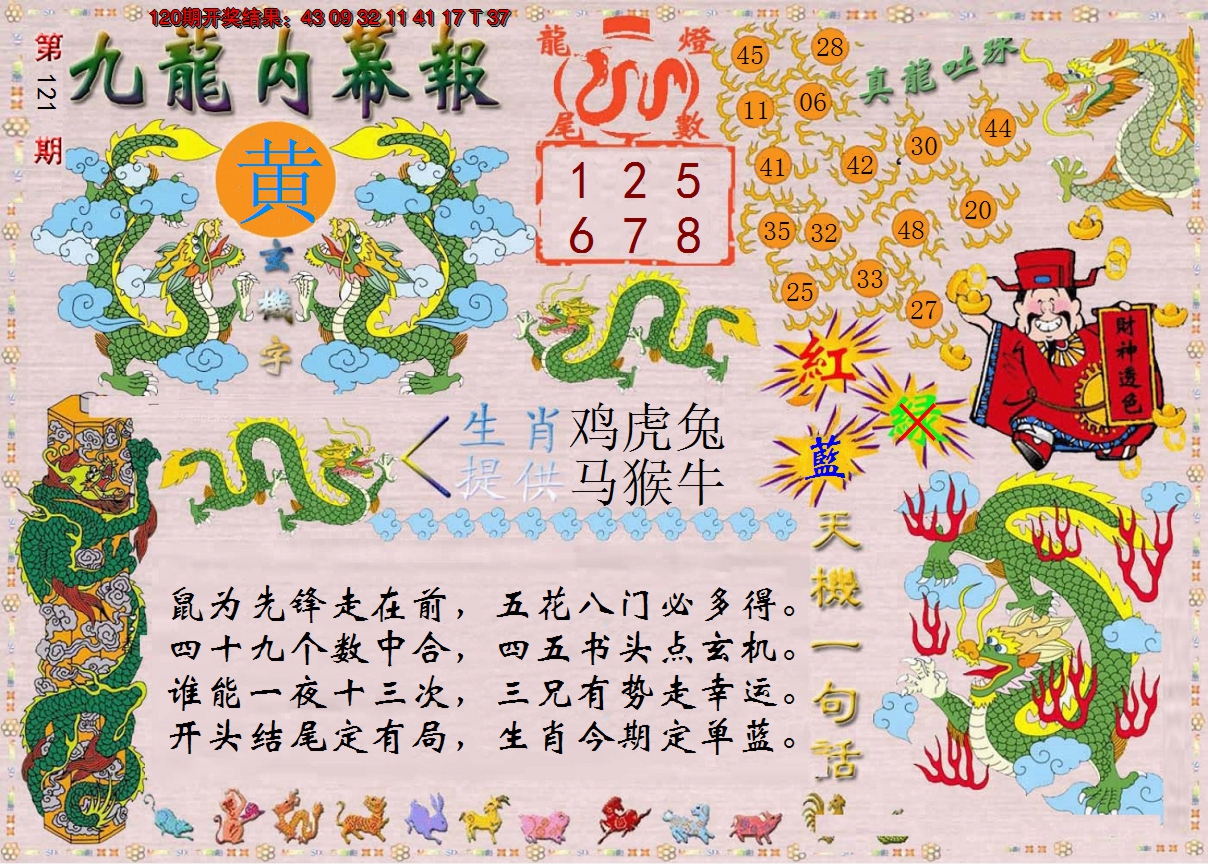 120期开奖结果：43 09 32 11 41 17 T 37
第
121
期
九龍内幕報
黄
玄
機
字
龍 燈
尾 數
1 2 5
6 7 8
真龍吐珠
45 28
11 06
41 42 30 44
35 32 48 20
25 33 27
財神透色
紅
绿
藍
生肖 鸡虎兔
提供 马猴牛
天機一句話
鼠为先锋走在前，五花八门必多得。
四十九个数中合，四五书头点玄机。
谁能一夜十三次，三兄有势走幸运。
开头结尾定有局，生肖今期定单蓝。